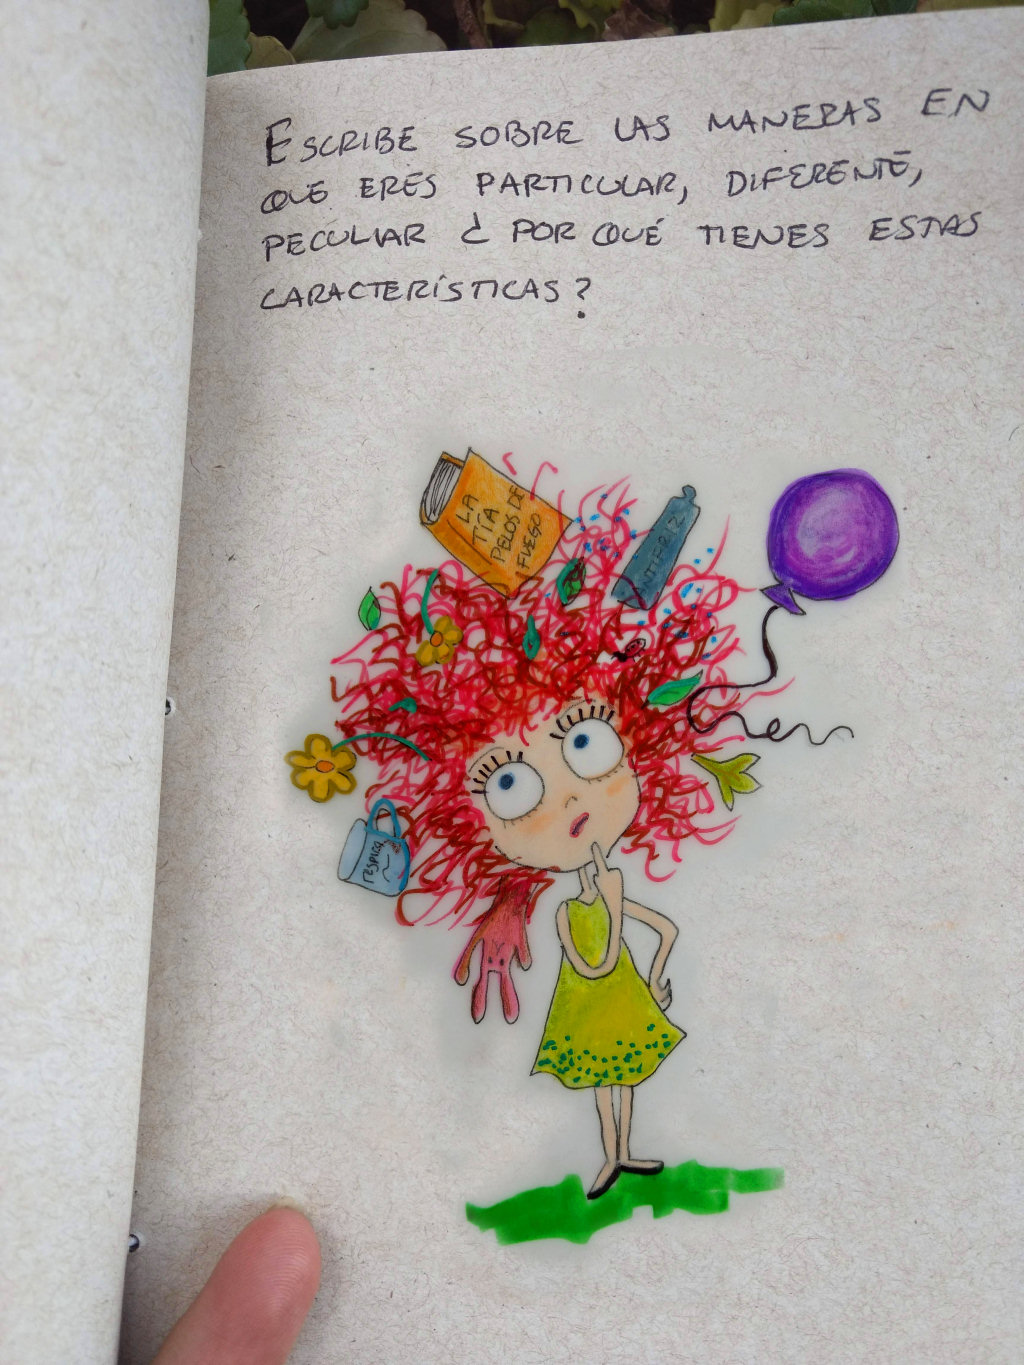 ESCRIBE SOBRE LAS MANERAS EN
QUE ERES PARTICULAR, DIFERENTE,
PECULIAR ¿ POR QUÉ TIENES ESTAS
CARACTERÍSTICAS?
LA
TÍA
PELOS DE
FUEGO
ANTIFRIZZ
RESPIRA